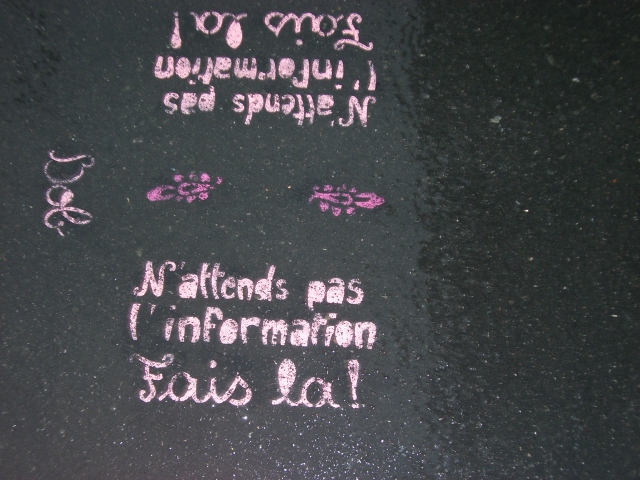 N'attends pas
l'information
Fais la!
N'attends pas
l'information
Fais la!